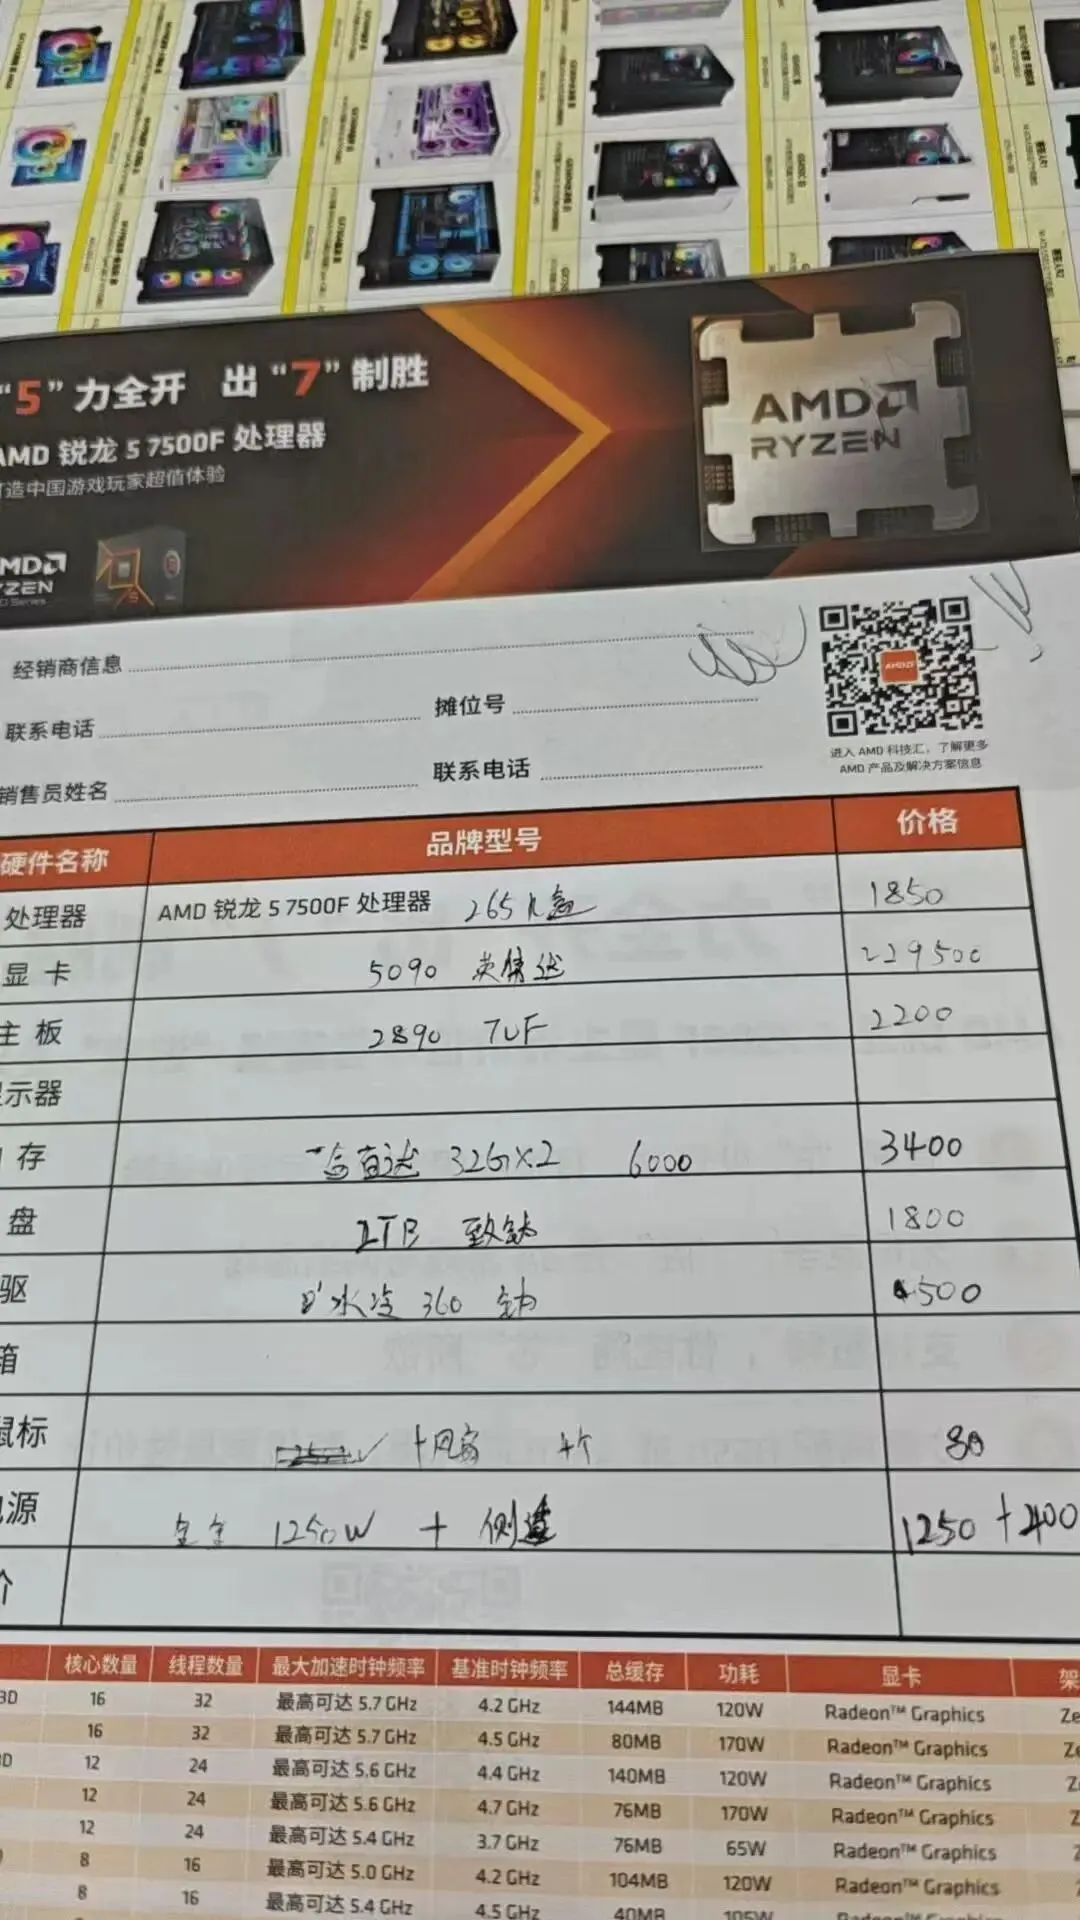 “5”力全开 出“7”制胜
AMD 锐龙 5 7500F 处理器
打造中国游戏玩家超值体验
AMD
RYZEN
AMD
RYZEN
经销商信息
联系电话
摊位号
销售员姓名
联系电话
进入 AMD 科技汇，了解更多
AMD 产品及解决方案信息
硬件名称 品牌型号 价格
处理器 AMD 锐龙 5 7500F 处理器 265K盒 1850
显卡 5090 229500
主板 2890 TUF 2200
示器
存 32G×2 6000 3400
盘 2TB 致钛 1800
驱 水冷 360 500
箱
鼠标 +风扇 4个 80
源 1250W + 侧透 1250+400
价
核心数量 线程数量 最大加速时钟频率 基准时钟频率 总缓存 功耗 显卡 架
3D 16 32 最高可达 5.7 GHz 4.2 GHz 144MB 120W Radeon™ Graphics Ze
16 32 最高可达 5.7 GHz 4.5 GHz 80MB 170W Radeon™ Graphics Ze
D 12 24 最高可达 5.6 GHz 4.4 GHz 140MB 120W Radeon™ Graphics Z
12 24 最高可达 5.6 GHz 4.7 GHz 76MB 170W Radeon™ Graphics Z
12 24 最高可达 5.4 GHz 3.7 GHz 76MB 65W Radeon™ Graphics
8 16 最高可达 5.0 GHz 4.2 GHz 104MB 120W Radeon™ Graphics
8 16 最高可达 5.4 GHz 4.5 GHz 40MB 105W Radeon™ Graphics